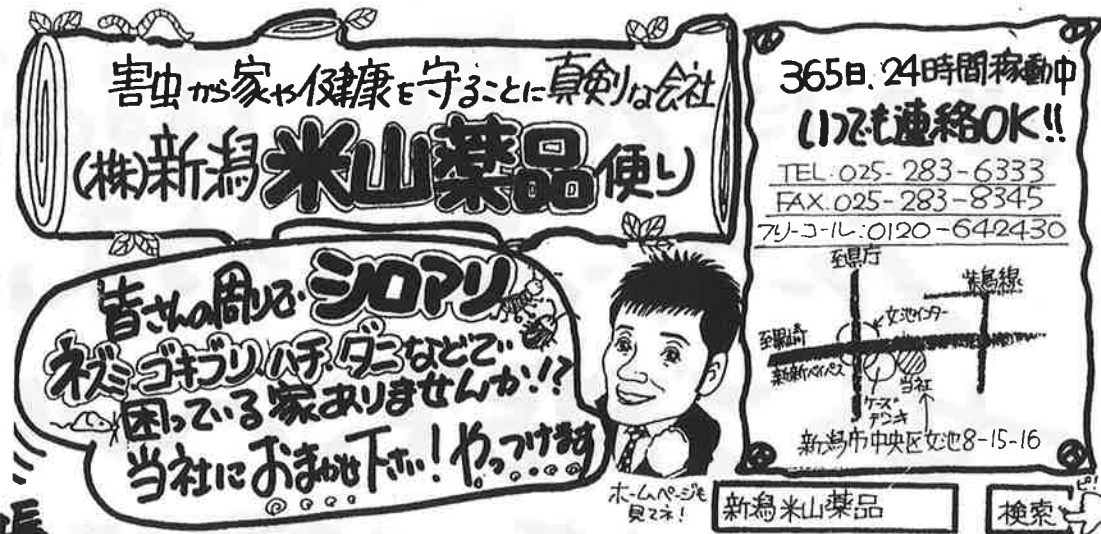 害虫から家や健康を守ることに真剣な会社
(株)新潟米山薬品便り
皆さんの周りでシロアリ
ネズミ、ゴキブリ、ハチ、ダニなどで
困っている家ありませんか!?
当社におまかせ下さい!やっつけます
365日、24時間稼動中
いつでも連絡OK!!
TEL:025-283-6333
FAX:025-283-8345
フリーコール:0120-642430
至県庁
女池インター
至黒崎
新新バイパス
当社
ケーズデンキ
新潟市中央区女池8-15-16
ホームページも
見てネ!
新潟米山薬品
検索
ピ!